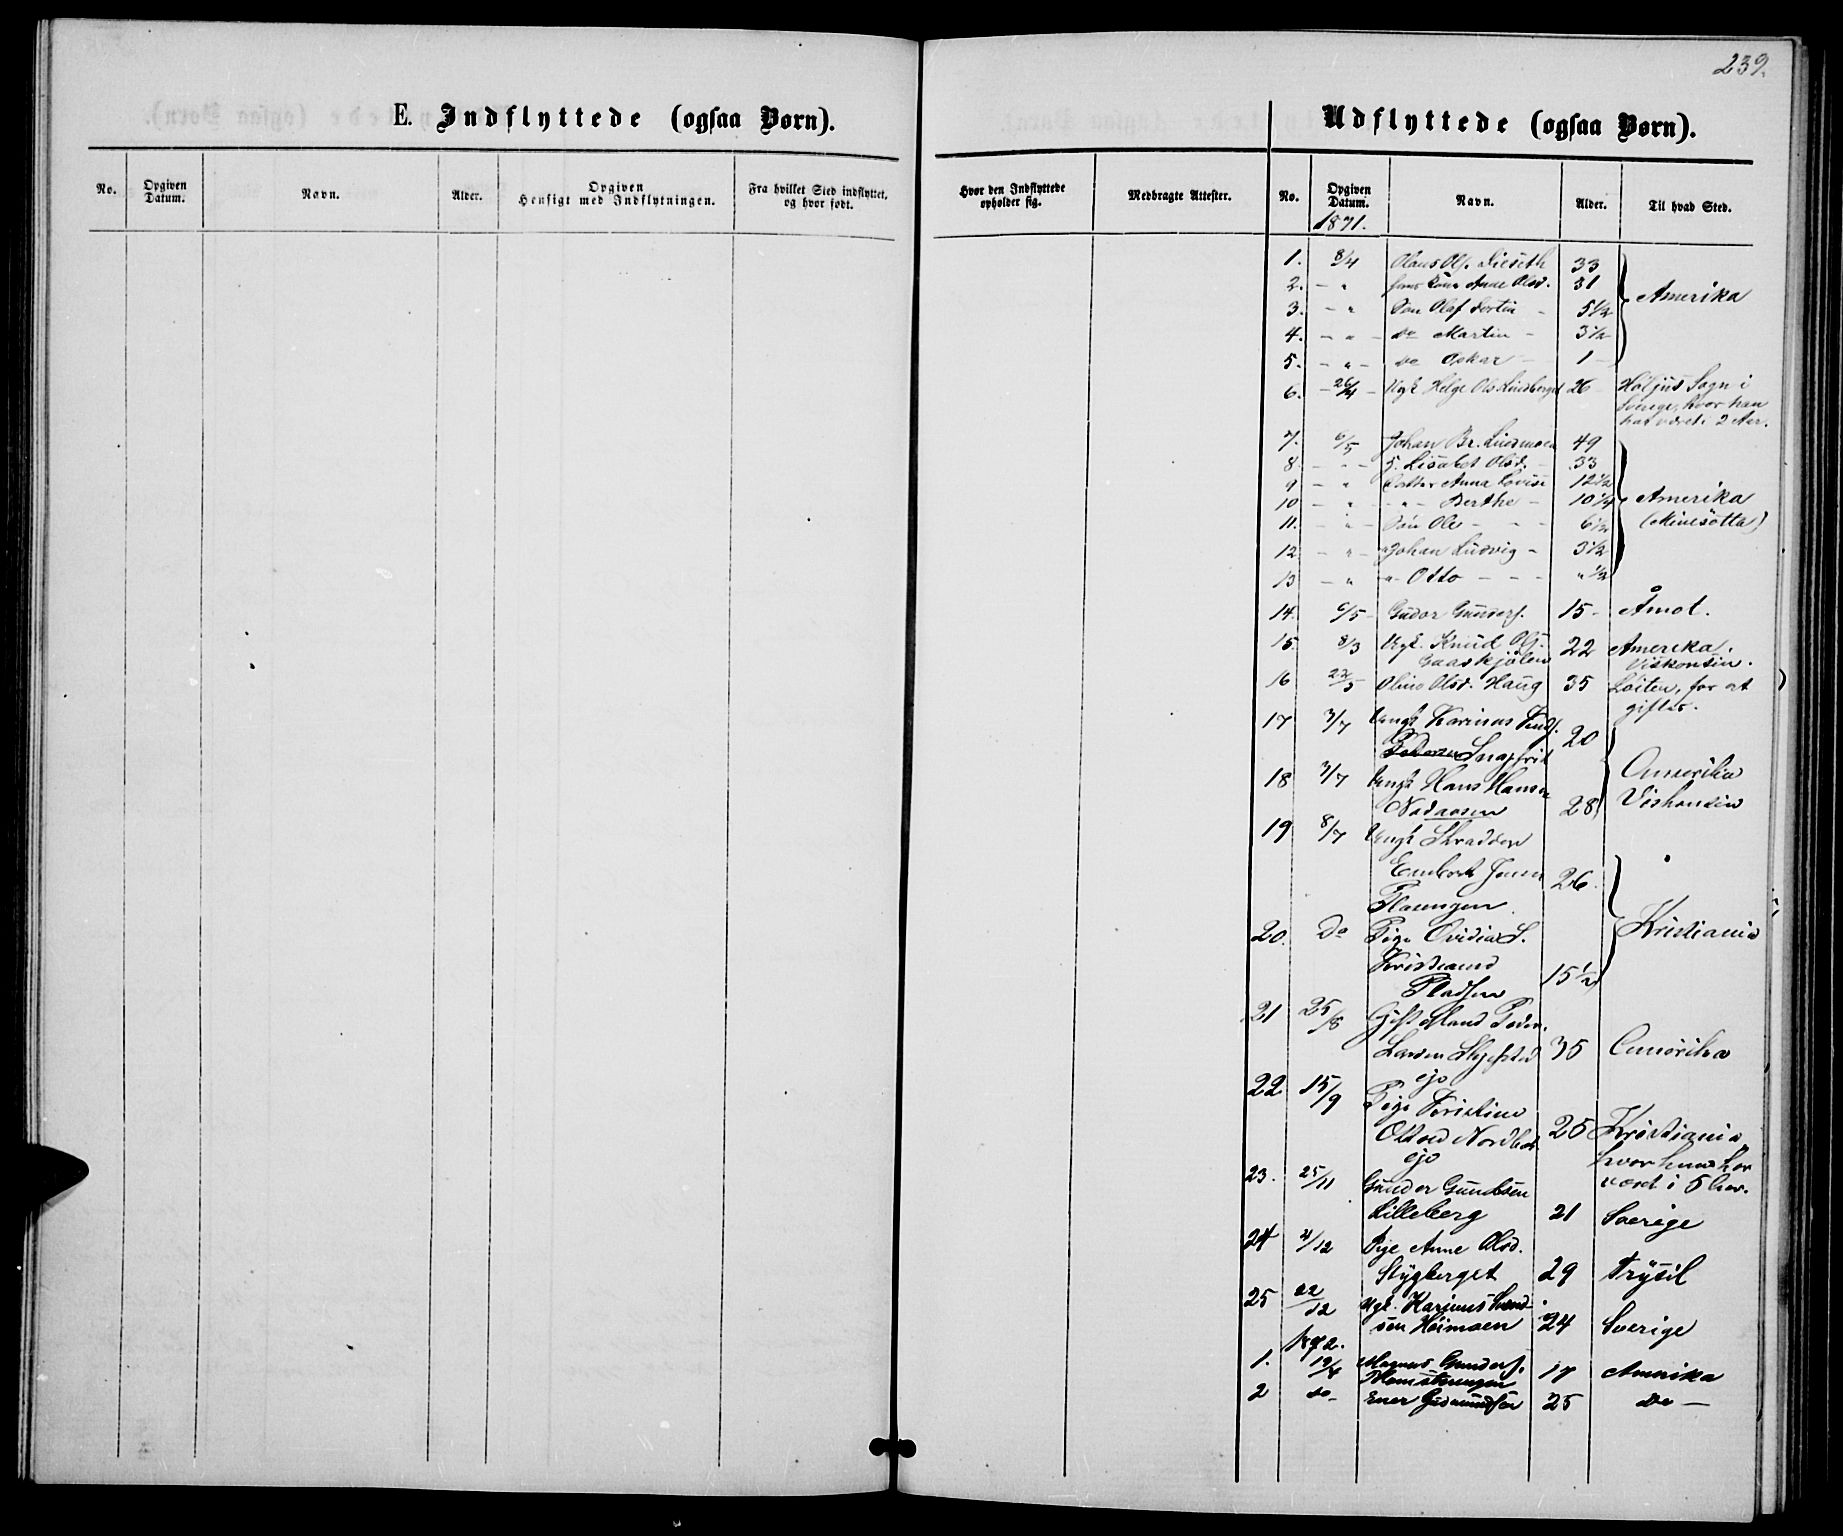 239.
E. Indflyttede (ogsaa Børn).
No. Opgiven Datum. Navn. Alder. Opgiven Hensigt med Indflytningen. Fra hvilket Sted indflyttet, og hvor født.
Hvor den Indflyttede opholder sig. Medbragte Attester.
Udflyttede (ogsaa Børn).
No. Opgiven Datum. Navn. Alder. Til hvad Sted.
1871.
1. 8/4 Olaus Ols. Lieseth 33
2. - " Anne Olsd. 31 Amerika
3. - " Søn Olaf 5 1/2
4. - " - do Martin - 3 1/2
5. - " - do Oskar - 1 -
6. - 26/4 - Ugk. Helge Ols. Lindberget 26 - Höljus Sogn i
Sverige, hvor han
har været i 2 Aar.
7. 6/5 Johan Br. 49
8. - " - Lisabet Olsd. - 33
9 - " Anna Lovise 12 1/2
10 - " - " - Berthe - 10 1/4 Amerika
11. - " - Søn Ole - - - 6 1/2 (Minesotta)
12 - " - " Johan Ludvig - 3 1/2
13 - " " - Otto - - - " 1/2
14. 6/5 - Gudor Gunders. 15 - Åmot.
15. 8/3 Ugk. Knud Ols. 22 Amerika.
Gaaskjølen Viskonsin.
16 22/5 Oline Olsd. Haug 35 Løiten, for at
giftes.
17 3/7 Ungk Karinus 20
18 3/7 Ungk Hans Hansen Amerika
28 Viskonsin
19 8/7 Ungk Skrædder
Embret Jensen 26.
20. Do Pige Ovidia S. Kristiania
Pladsen 15 1/2
21 25/8 Gift Mand Peder
Larsen 35 Amerika
22 15/9 Pige Kristine
Olsd 25 Kristiania
hvor hun har
været i 5 Aar.
23. 25/11 Gunder Gundersen
Lilleberg 21 Sverige
24 4/12 Pige Anne Olsd.
Stygberget 29 Trysil
25 22/12 Ugk. Karinus
Høimoen 24 Sverige
1872.
1. 19/4 Magnus Gunders. 17 Amerika
2 do - Ener 25 do -